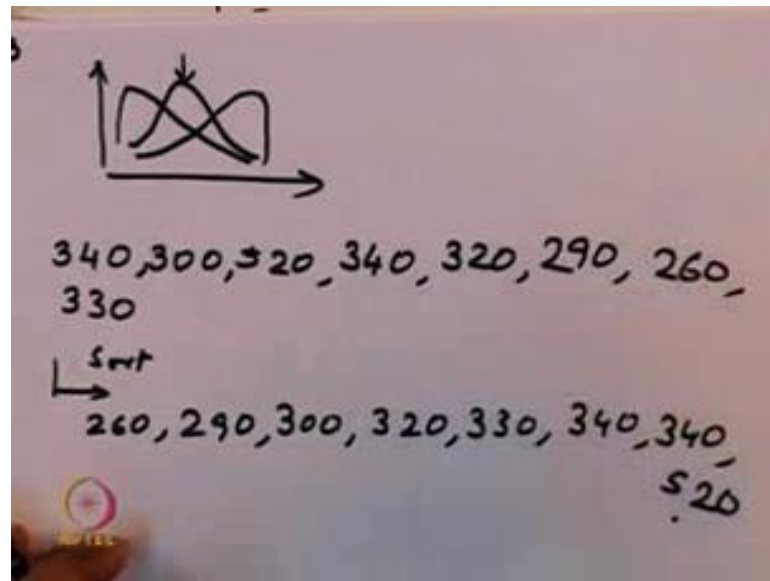 340, 300, 520, 340, 320, 290, 260,
330
Sort
260, 290, 300, 320, 330, 340, 340,
520